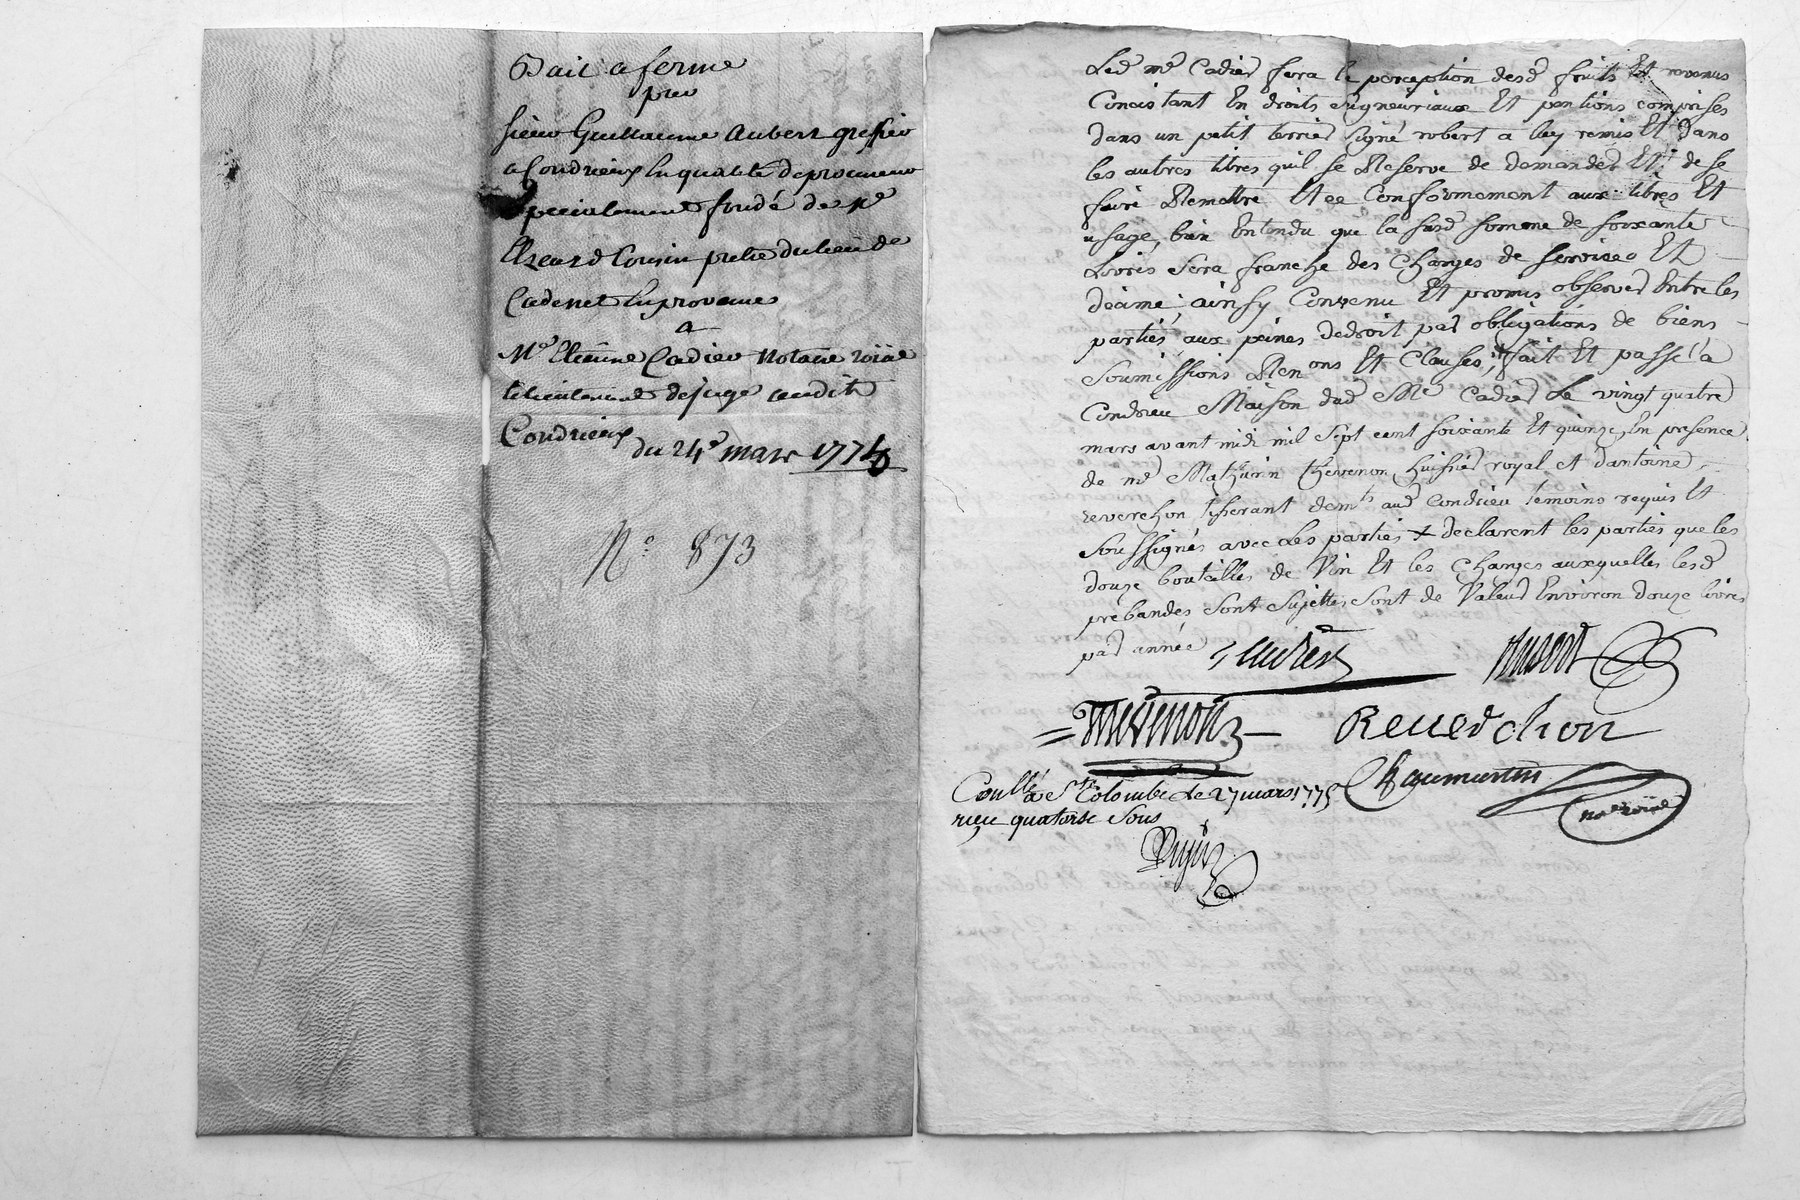 Bail a ferme
par
sieur Guillaume Aubert greffier
a Condrieux En qualité de procureur
specialement fondé de Me
Elzeard Cousin pretre du lieu de
Cadenet En provence
a
Me Etienne Cadier Notaire roïal
Lieutenant de juge audit
Condrieux
du 24e mars 1775
N° 873
Led me Cadier fera la perception desd fruits Et revenus
Concistant En droits seigneuriaux Et pentions comprises
dans un petit terrier signé robert a luy remis Et dans
les autres titres quil se Reserve de demander Et de se
faire Remettre Et ce Conformement aux titres Et
usage, bien Entendu que la susd somme de soixante
Livres sera franche des Charges de services Et
decime; ainsy Convenu Et promis observer Entre les
parties, aux peines de droit par obligations de biens
soumissions Renons Et Clauses; fait Et passé a
Condrieu Maison dud Me Cadier Le vingt quatre
mars avant midi mil sept cent soixante Et quinze, En presence
de me Mathurin thevenon huissier royal et dantoine
reverchon tisserant demts aud Condrieu temoins requis Et
soussignés avec les parties + declarent les parties que les
douze bouteilles de Vin Et les Charges auxquelles lesd
prebandes sont sujettes, sont de Valeur Environ douze livres
par année
Cadier
Thevenon
Reverchon
Chaumartin
nore roïal
Conllé a Ste Colombe le 27 mars 1775
reçu quatorse sous